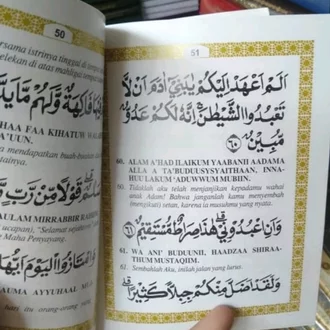 50
sama istrinya tinggal di
di atas mahligai
فَاكِهَةٌ وَلَهُمْ مَّا يَدَّ
HAA FAA KIHATUW WALA
A'UUN.
mendapatkan buah-buah
قَوْلًا مِّنْ رَّبٍّ
AULAM MIRRABBIR
ucapan), "Selamat
Maha Penyayang.
وَامْتَازُوا الْيَوْمَ اَيُّهَا
AUMA AYYUHAAL
orang-orang yang
51
اَلَمْ اَعْهَدْ اِلَيْكُمْ يٰبَنِيْٓ اٰدَمَ اَنْ لَّا
تَعْبُدُوا الشَّيْطٰنَ اِنَّهٗ لَكُمْ عَدُوٌّ
مُّبِيْنٌ ٦٠
60. ALAM A'HAD ILAIKUM YAABANII AADAMA
ALLA A TA'BUDUUSYSYAITHAAN, INNA-
HUU LAKUM 'ADUWWUM MUBIIN.
60. Tidaklah aku telah menjanjikan kepadamu wahai
anak Adam! Bahwa janganlah kamu menyembah
mengikuti setan, karena ia musuhmu yang nyata.
وَاَنِ اعْبُدُوْنِيْ هٰذَا صِرَاطٌ مُّسْتَقِيْمٌ ٦١
61. WA ANI' BUDUUNII, HAADZAA SHIRAA-
THUM MUSTAQIIM.
61. Sembahlah Aku, inilah jalan yang lurus.
وَلَقَدْ اَضَلَّ مِنْكُمْ جِبِلًّا كَثِيْرًا